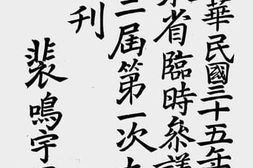 華民國三十五年
省臨時參議
二屆第一次
刊
裴鳴宇